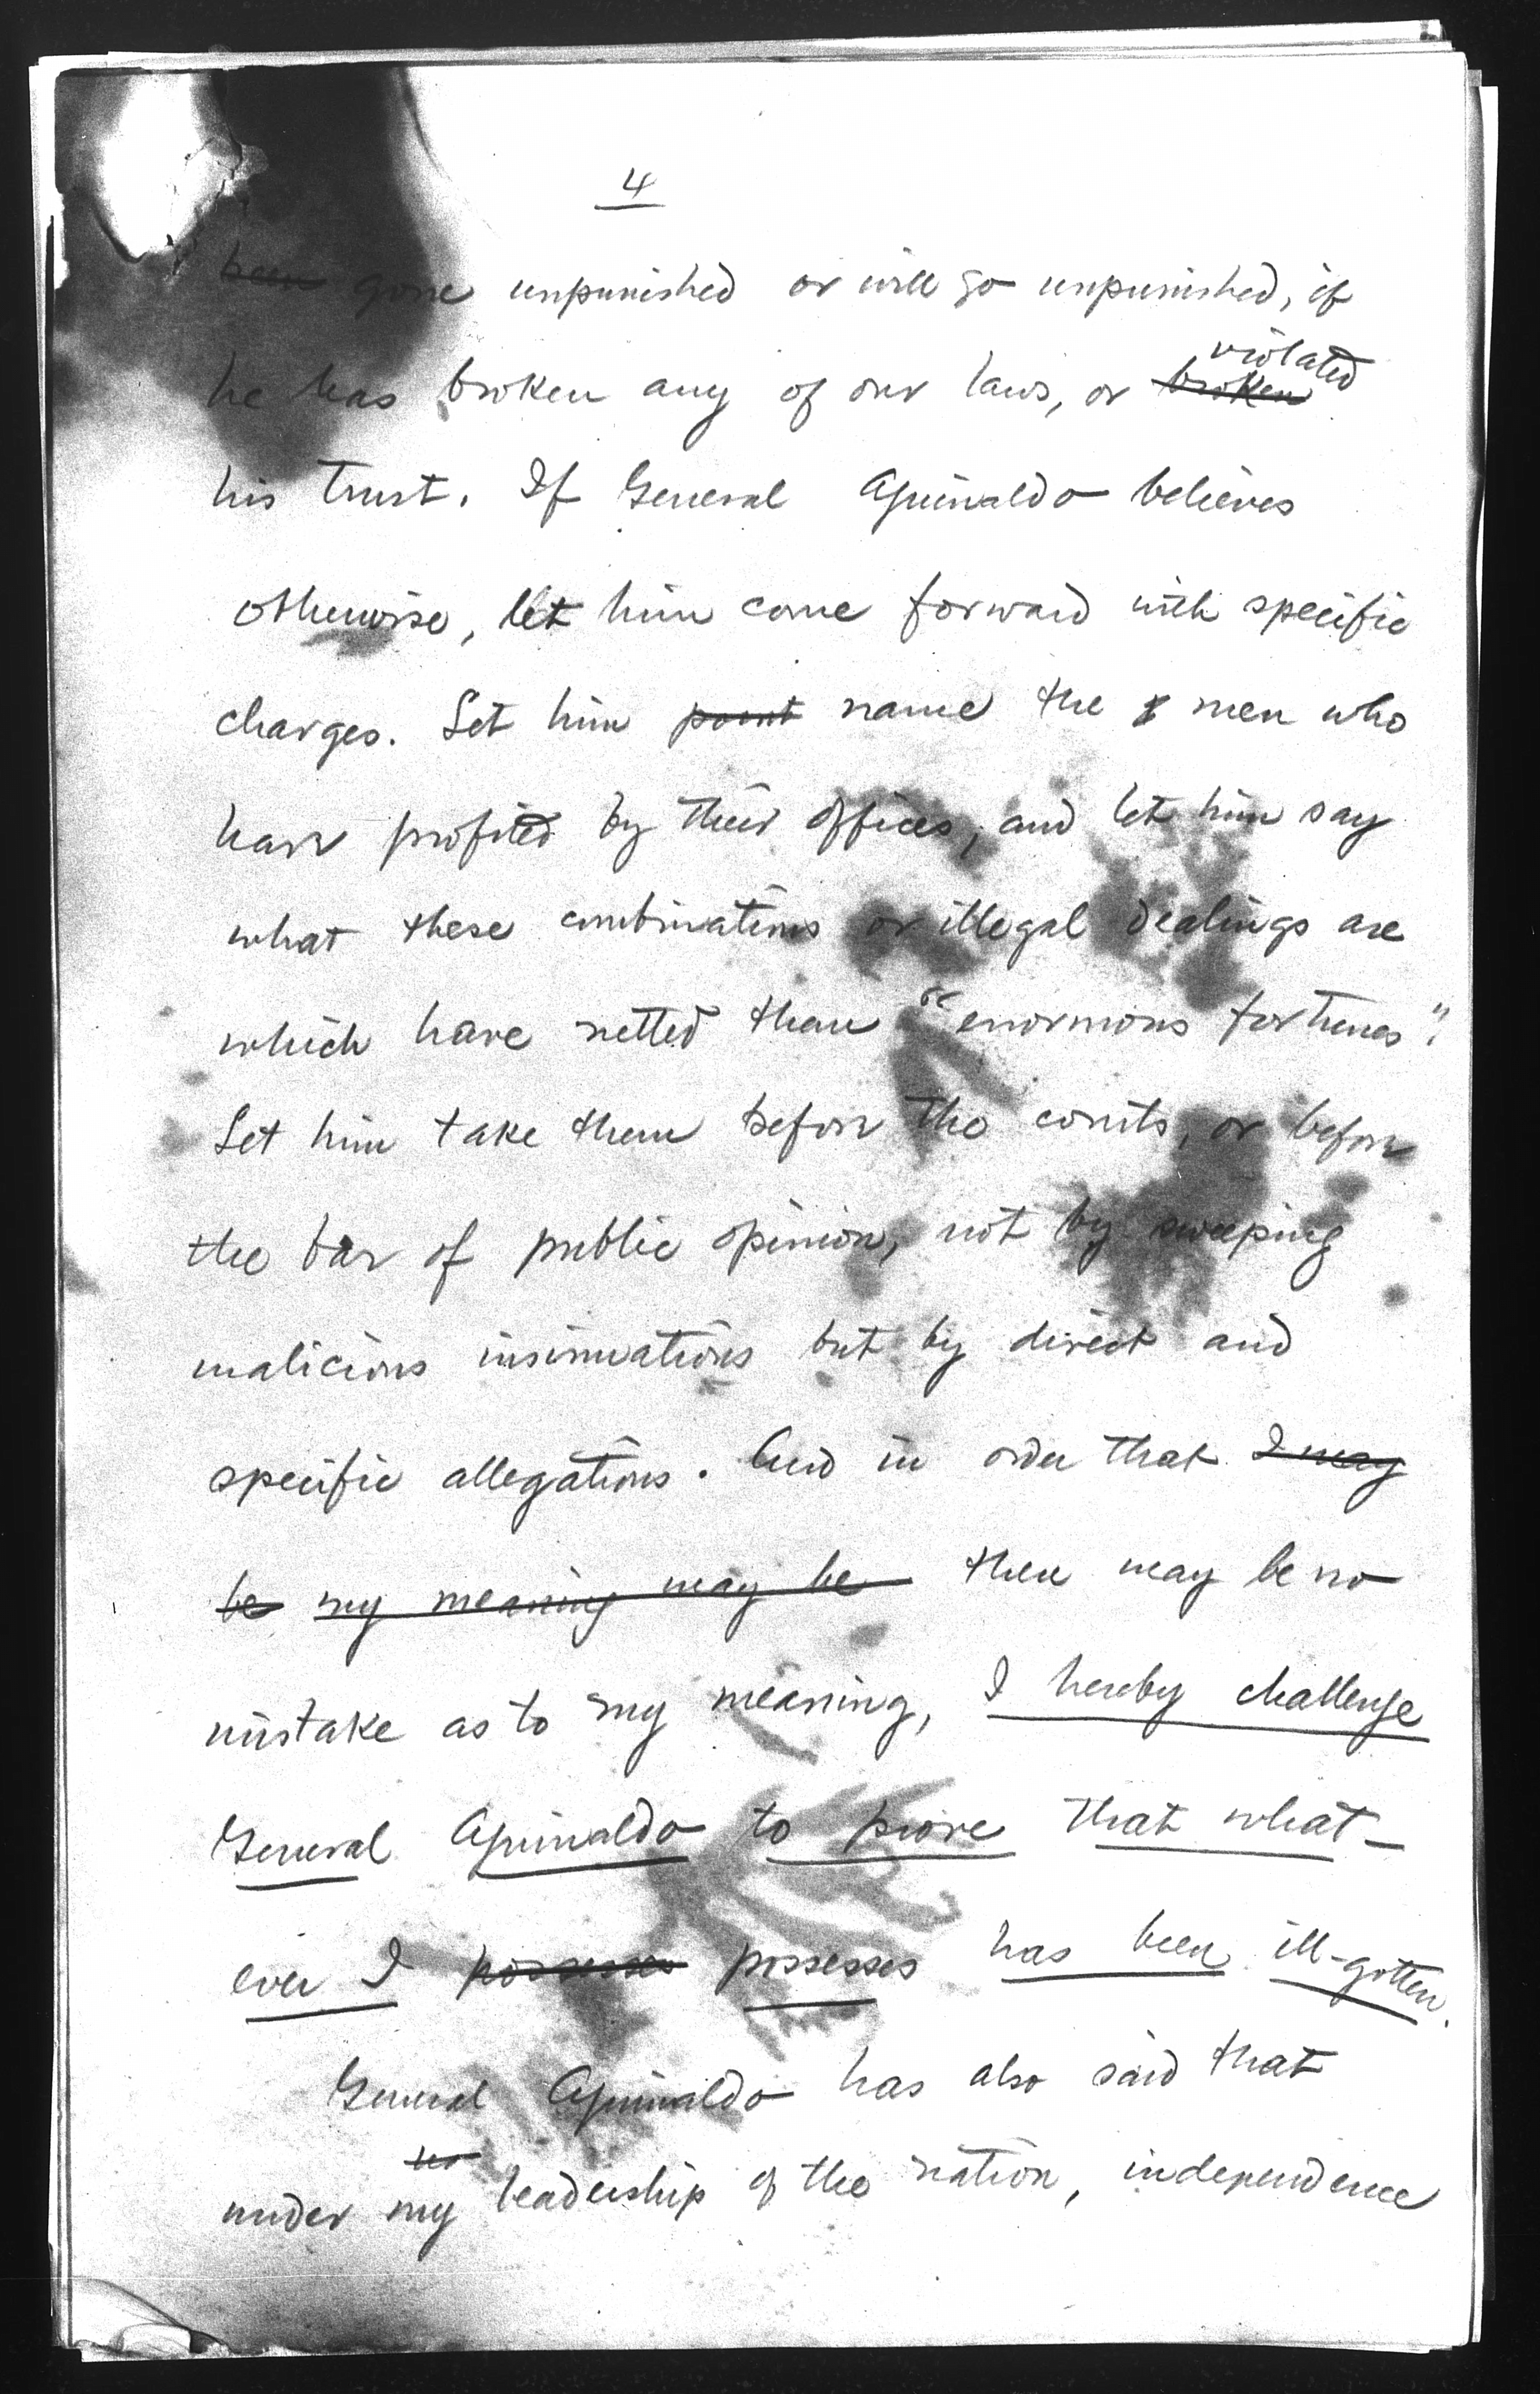 4
been gone unpunished or will go unpunished, if
violated
he has broken any of our laws, or broken
his trust. If General Aguinaldo believes
otherwise, let him come forward with specific
charges. Let him point name the men who
have profited by their offices, and let him say
what these combinations or illegal dealings are
which have netted them "enormous fortunes".
Let him take them before the courts, or before
the bar of public opinion, not by sweeping
malicious insinuations but by direct and
specific allegations. And in order that I may
be my meaning may be there may be no
mistake as to my meaning, I hereby challenge
General Aguinaldo to prove that what-
ever I possesses possesses has been ill-gotten.
General Aguinaldo has also said that
under my leadership of the nation, independence